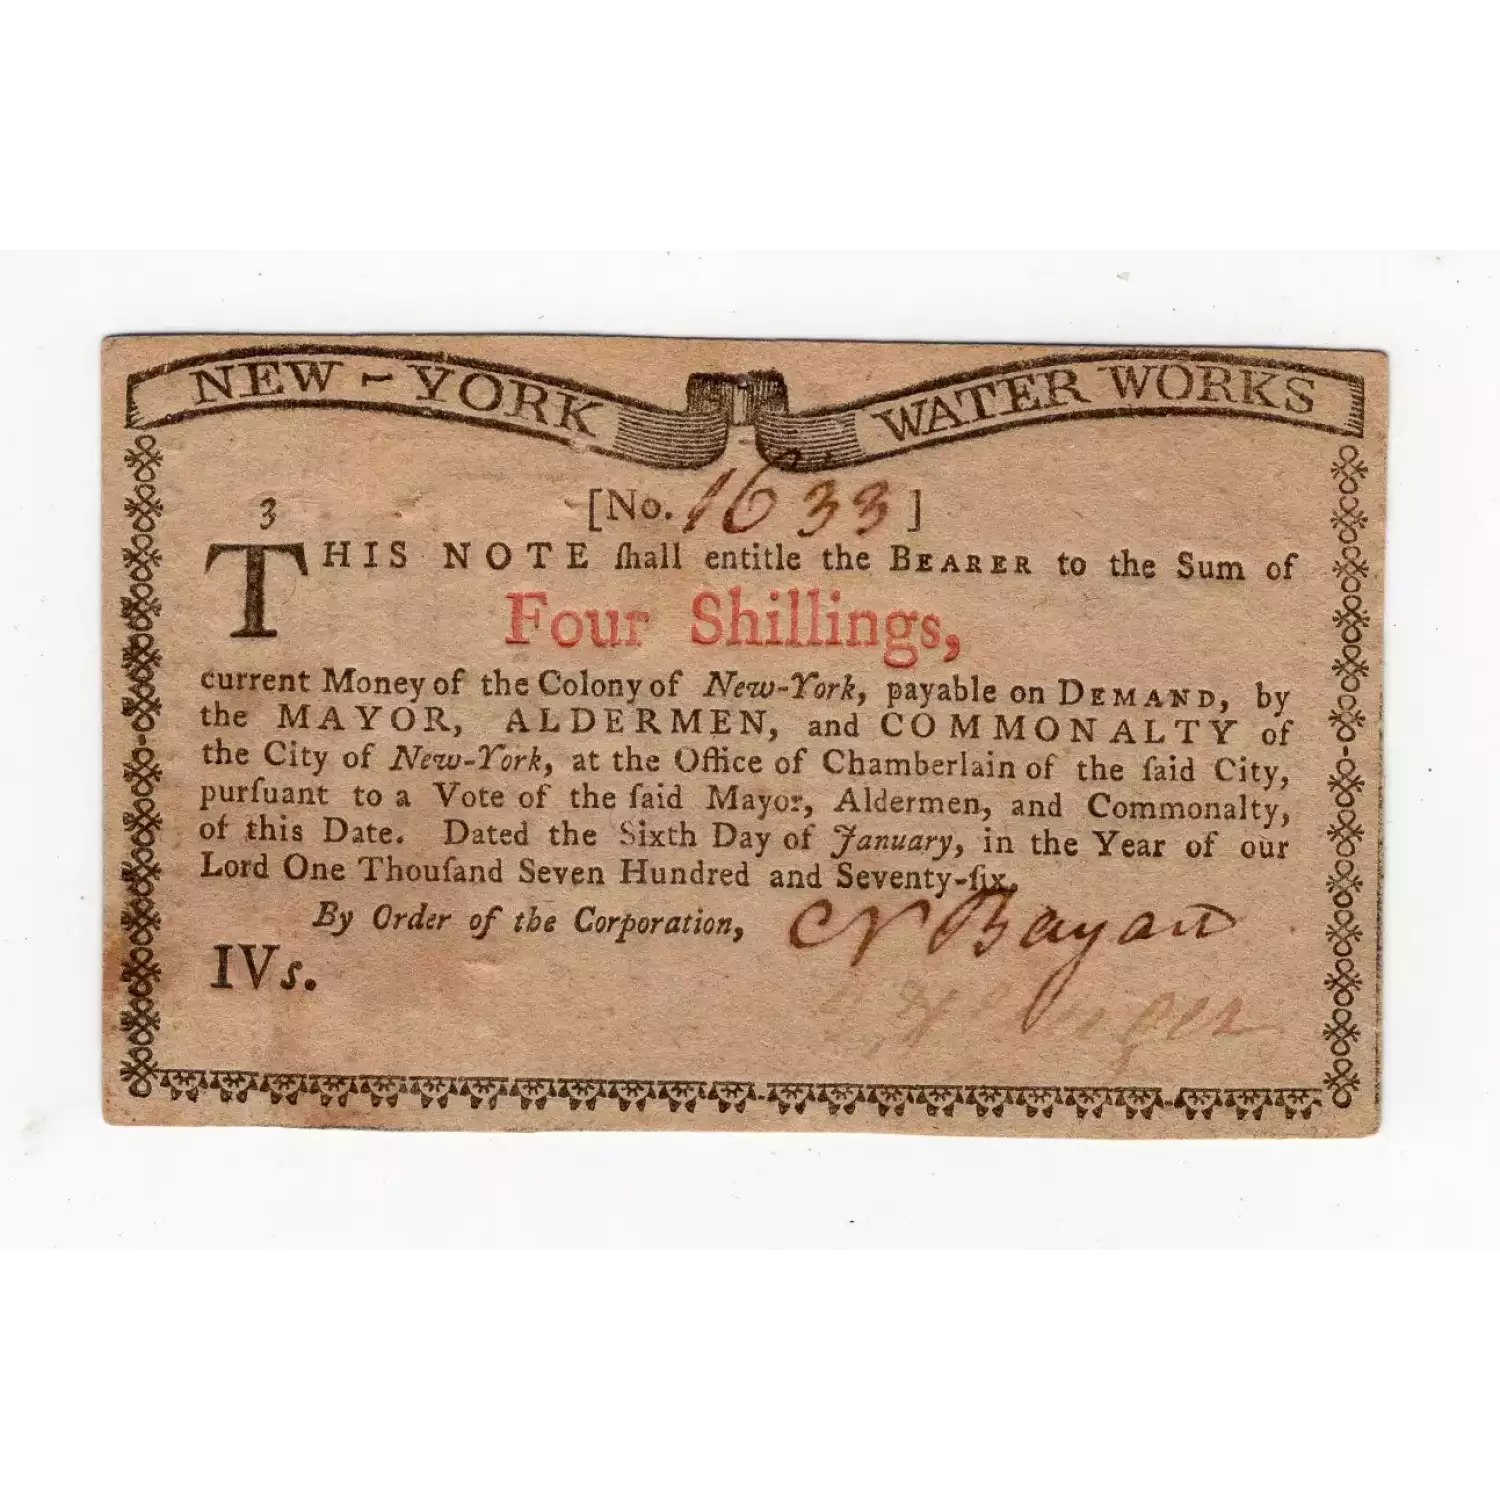 NEW-YORK WATER WORKS
3 [No. 1633]
THIS NOTE ſhall entitle the BEARER to the Sum of
Four Shillings,
current Money of the Colony of New-York, payable on DEMAND, by
the MAYOR, ALDERMEN, and COMMONALTY of
the City of New-York, at the Office of Chamberlain of the ſaid City,
purſuant to a Vote of the ſaid Mayor, Aldermen, and Commonalty,
of this Date. Dated the Sixth Day of January, in the Year of our
Lord One Thouſand Seven Hundred and Seventy-ſix.
By Order of the Corporation, Bayard
IVs.